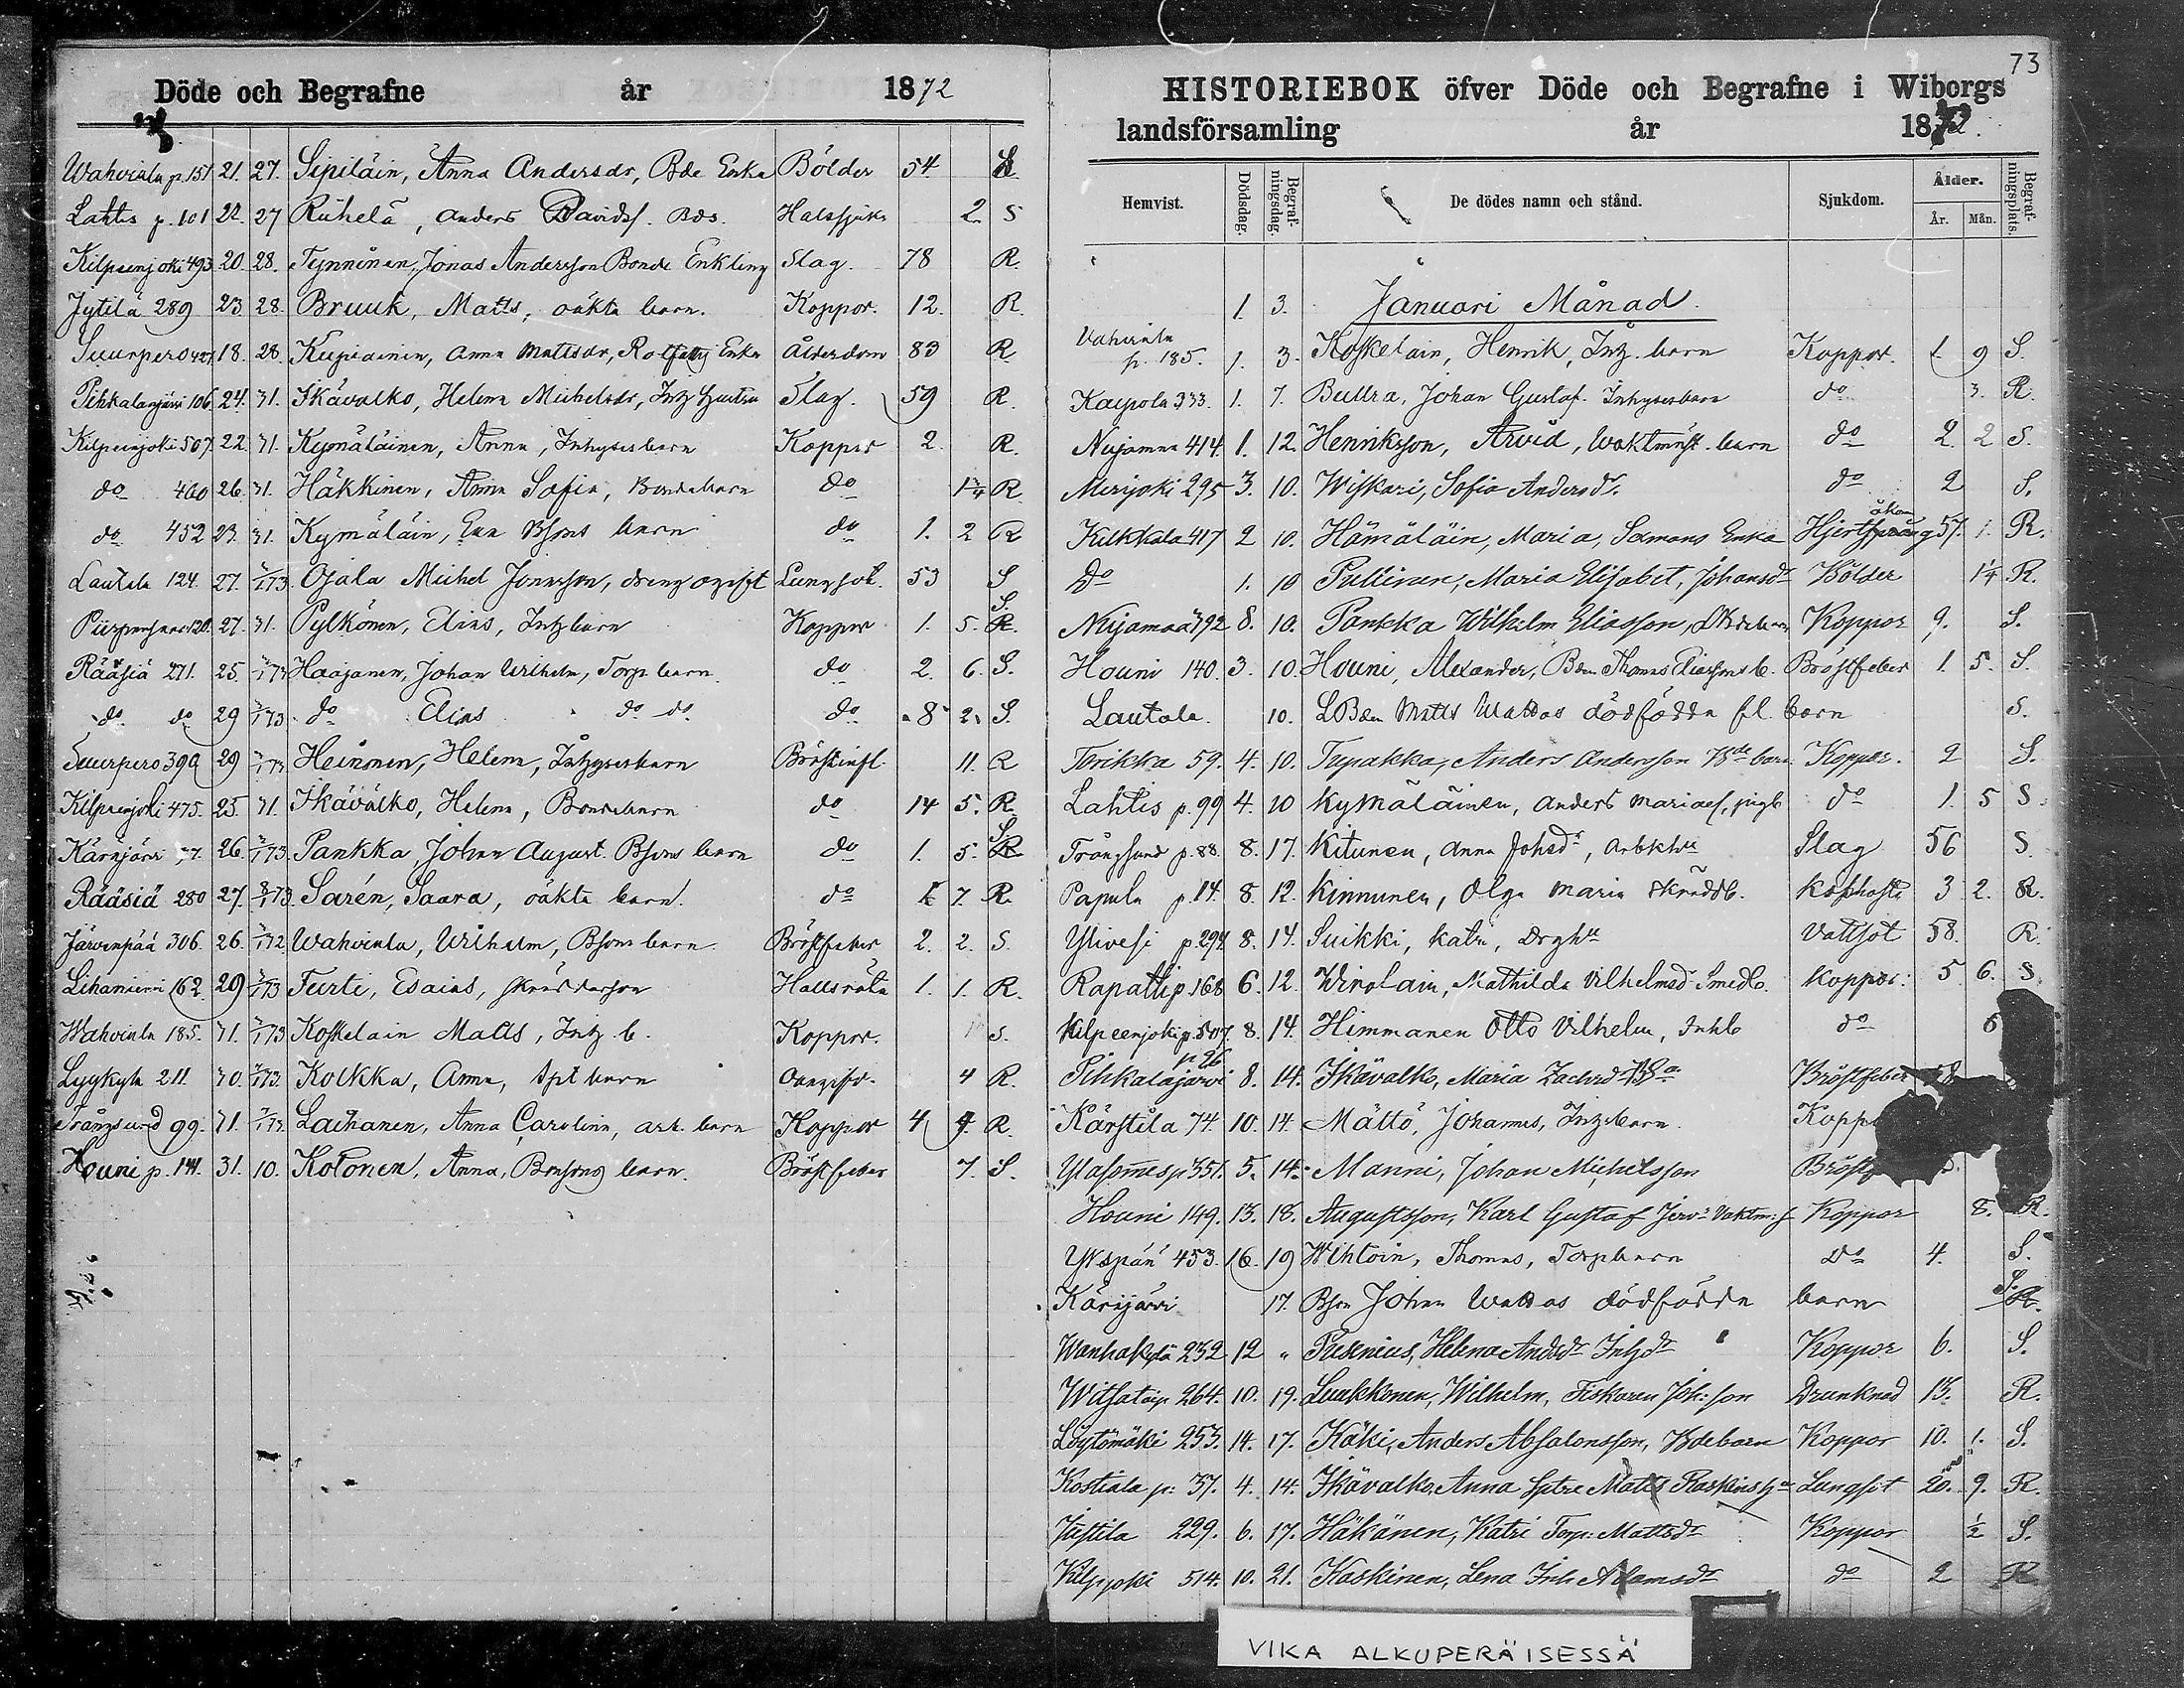 Döde och Begrafne år 1872
Wahviala p. 151 21. 27. Sipiläin, Anna Andersdr, Bde Enka Bölder 54 S.
Lahtis p. 101 22. 27 Riihelä, Anders Davidsf. Bds. Halssjuka 2 S
Kilpeenjoki 493 20. 28. Tynninen, Jonas Andersson Bonde Enkling Slag. 78 R.
Jytilä 289 23. 28. Bruuk, Matts, oäkta barn. Koppor. 12. R.
Suurpero 427 18. 28. Kupiainen, Anna Mattsdr, Enka Ålderdom 83 R.
Pihkalanjärvi 106 24. 31. Ikävalko, Helena Michelsdr, Inh Hustru Slag. 59 R.
Kilpeenjoki 507. 22. 31. Kymäläinen, Anna, Inhysesbarn Koppor 2. R.
do 460 26. 31. Häkkinen, Anna Sofia, Bondebarn do 1¾ R.
do 452 23. 31. Kymäläin, Eva Bsons barn do 1. 2 R
Lautala 124. 27. 5/1 73. Ojala Michel Jonasson, dreng ogift Lungsot. 53 S
120. 27. 31. Pylkönen, Elias, Inhbarn Koppor 1. 5. S. R.
Rääsiä 271. 25. 173 Haajanen, Johan Wilhelm, Torp. barn. do 2. 6. S.
do do 29 173. do Elias do do do 8 2. S.
Suurpero 399 29 173 Heinonen, Helena, Inhysesbarn Bröstinfl. 11. R
Kilpeenjoki 475. 25. 31. Ikävälko, Helena, Bondebarn do 14 5. R.
Kärnjärvi 77. 26. 173. Pankka, Johan August. Bsons barn do 1. 5. S. R
Rääsiä 280 27. 8/1 73. Sarén, Saara, oäkta barn. do 7. R.
Järvenpää 306. 26. 172. Wahviala, Wilhelm, Bsons barn. Bröstfeber 2. 2. S.
Lihaniemi 162. 29 173 Turti, Esaias, skräddarson Hallsröta 1. 1. R.
Wahviala 185. 31. 173 Koskelain Matts, Inh. b. Koppor. S.
Lyykylä 211. 30. 173. Kolkka, Anna, Spt barn Oangifv. 4 R.
Trångsund 99. 31. 173. Laihanen, Anna Carolina, arb. barn Koppor 4 9. R.
Houni p. 141. 31. 10. Kolonen, Anna, Bonsons barn. Bröstfeber 7. S.
73
HISTORIEBOK öfver Döde och Begrafne i Wiborgs
landsförsamling år 1873.
Hemvist. Dödsdag. Begrafningsdag. De dödes namn och stånd. Sjukdom. Ålder. År. Mån. Begrafningsplats.
1. 3. Januari Månad.
Vahviala p. 185. 1. 3. Koskelain, Henrik, Inh. barn Koppor. 1. 9 S.
Kaipola 333. 1. 7. Bullra, Johan Gustaf. Inhysesbarn do 3. R.
Nujamaa 414. 1. 12. Henriksson, Arvid, Waktmäst. barn do 2 2 S.
Merijoki 295 3. 10. Wiskari, Sofia Andersdr. do 2 S.
Kilkkala 417 2 10. Hämäläin, Maria, Sexmans Enka Hjertsprång 57. 1. R.
Do 1. 10 Pullinen, Maria Elisabet, Johansdr Bölder 1¼ R.
Nuijamaa 792 8. 10. Pankka Wilhelm Eliasson, Bdebarn Koppor 9. S.
Houni 140. 3. 10. Houni, Alexander, Bdn Thomas Eliassons b. Bröstfeber 1. 5. S.
Lautala. 10. LBden Matts Wattas dödfödda fl. barn S.
Terikka 59. 4. 10. Tupakka, Anders Andersson Bde barn. Koppor. 2 S.
Lahtis p. 99 4. 10 Kymäläinen, Anders Mariaes, pigb do 1. 5 S.
Trångsund p. 88. 8. 17. Kitunen, Anna Johsdr, Arbkhu Slag 56 S.
Papula p. 14. 8. 12. Kinnunen, Olga Maria Skräddb. Kikhosta 3 2. R.
Ylivesi p. 294 8. 14. Suikki, Katri, Drghu Vattsot 58. R.
Rapattip. 168 6. 12. Wirolain, Mathilda Vilhelmsd. Smedb. Koppor. 5 6. S.
Kilpeenjoki p. 507. 8. 14. Himmanen Otto Vilhelm, Inhb do 6
Pihkalajärvi p 96 8. 14. Ikävalko, Maria Zachrsdr Bröstfeber 58
Kärstilä 74. 10. 14. Mättö, Johannes, Inhsbarn. Kopp
Ylasommes p 351. 5. 14. Manni, Johan Michelsson Bröstf
Houni 149. 13. 18. Augustsson, Karl Gustaf Jernv. Vaktm. s. Koppor 8. R.
Ykspää 453. 16. 19 Wihtoin, Thomas, Torpbarn Do 4. S.
Kärijärvi 17. Bson Johan Wattas dödfödda barn S. R.
Wanhakylä 232 12 " Puknius, Helena Andsdr Inhdr Koppor 6. S.
Witsataip. 264. 10. 19. Luukkonen, Wilhelm, Fiskaren Joh:son Drunknad 13. R.
Löytömäki 253. 14. 17. Käki, Anders Absalonsson, Bdebarn Koppor 10. 1. S.
Kostiala p: 37. 4. 14. Ikävalko, Anna Sptre Matts Raskins hu Lungsot 20. 9. R.
Justila 229. 6. 17. Häkänen, Katri Torp: Mattsdr Koppor ½ S.
Kilpjoki 514. 10. 21. Kaskinen, Lena Inh Adamsdr do 2 R
VIKA ALKUPERÄISESSÄ